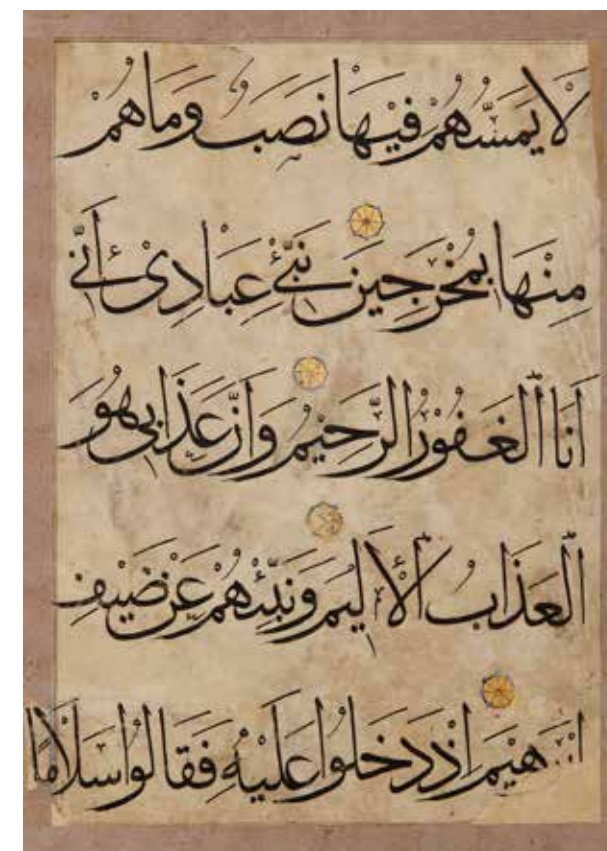 لَا يَمَسُّهُمْ فِيْهَا نَصَبٌ وَمَا هُمْ
مِنْهَا بِمُخْرَجِيْنَ نَبِّئْ عِبَادِىْ أَنِّىْ
أَنَا الْغَفُوْرُ الرَّحِيْمُ وَأَنَّ عَذَابِى هُوَ
الْعَذَابُ الْأَلِيْمُ وَنَبِّئْهُمْ عَنْ ضَيْفِ
إِبْرٰهِيْمَ إِذْ دَخَلُوْا عَلَيْهِ فَقَالُوْا سَلَامًا